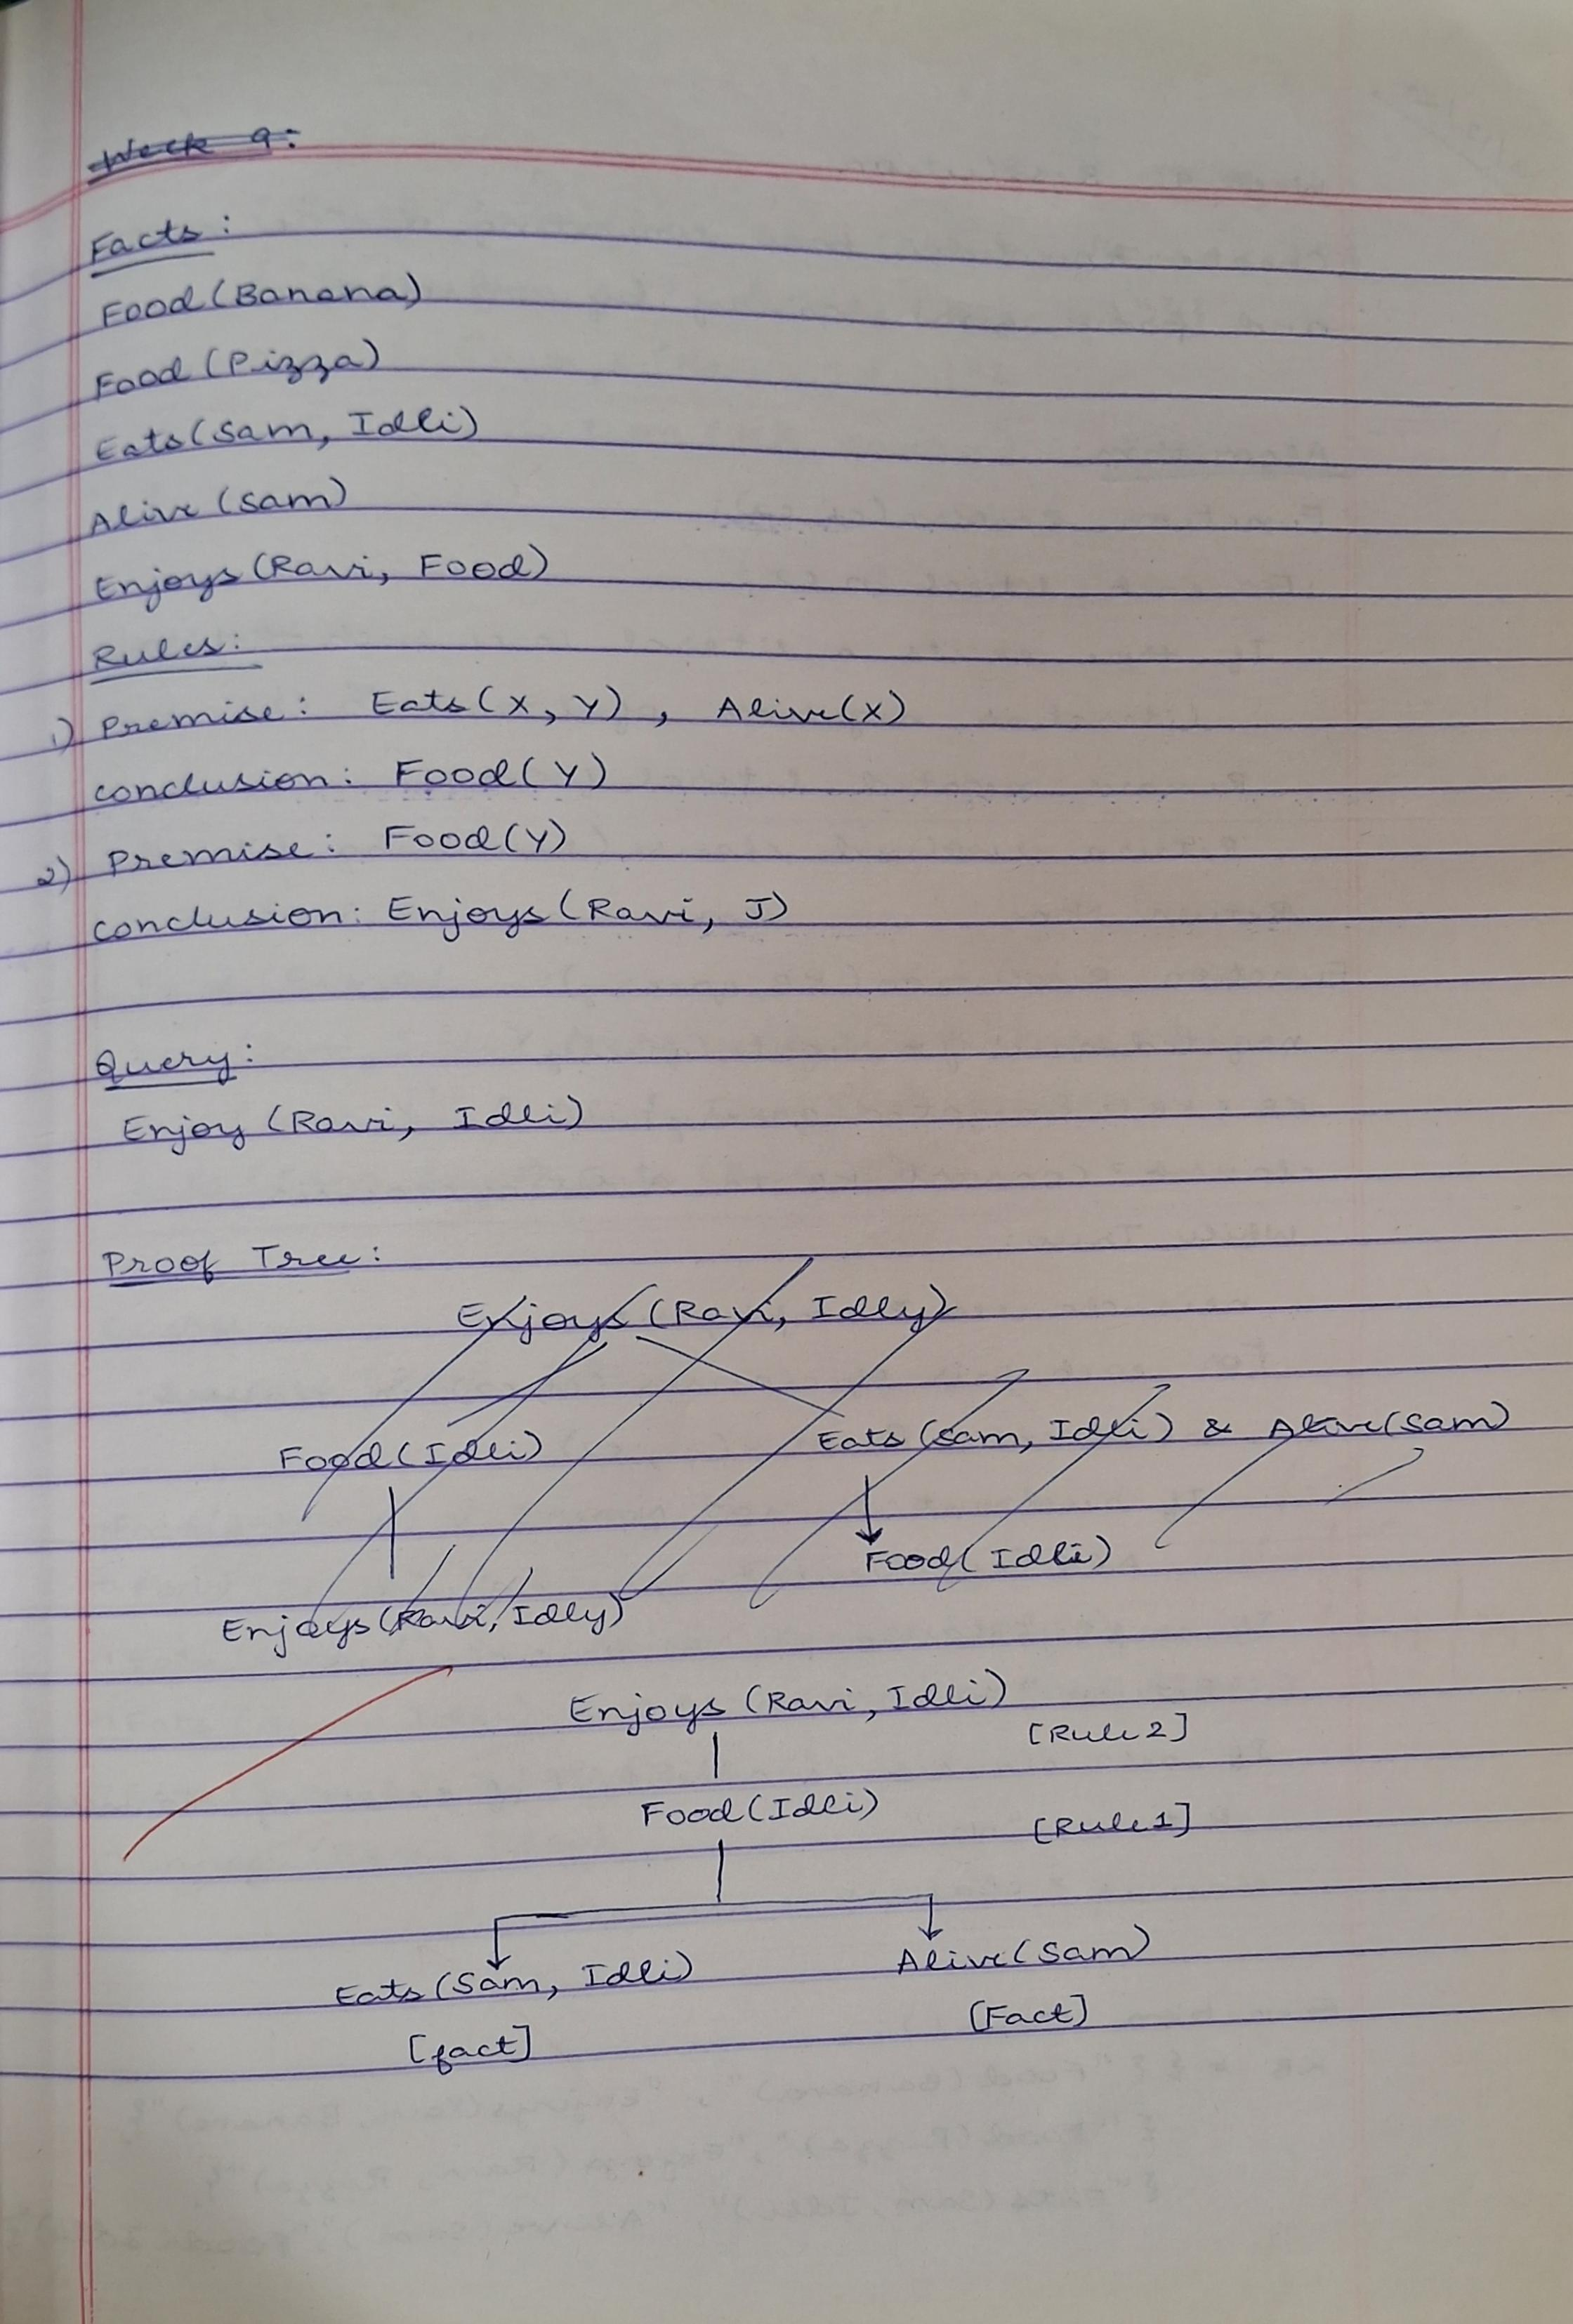 Week 9:
Facts:
Food (Banana)
Food (Pizza)
Eats (Sam, Idli)
Alive (Sam)
Enjoys (Ravi, Food)
Rules:
1) Premise: Eats (X, Y), Alive (X)
conclusion: Food (Y)
2) Premise: Food (Y)
conclusion: Enjoys (Ravi, J)
Query:
Enjoy (Ravi, Idli)
Proof Tree:
Enjoys (Ravi, Idly)
Food (Idli) Eats (Sam, Idli) & Alive (Sam)
Food (Idli)
Enjoys (Ravi, Idly)
Enjoys (Ravi, Idli)
[Rule 2]
Food (Idli)
[Rule 1]
Eats (Sam, Idli) Alive (Sam)
[fact] [Fact]